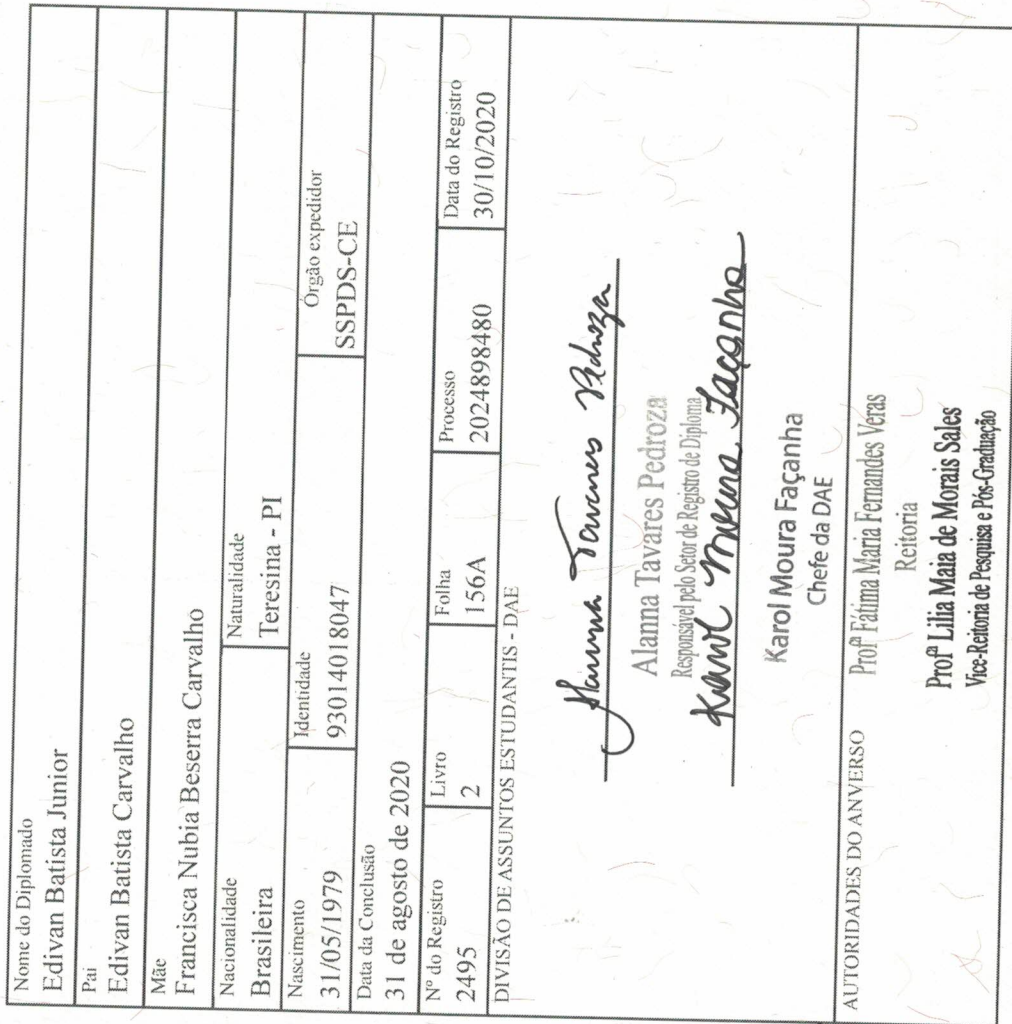 Nome do Diplomado
Edivan Batista Junior
Pai
Edivan Batista Carvalho
Mãe
Francisca Nubia Beserra Carvalho
Nacionalidade
Brasileira
Naturalidade
Teresina - PI
Nascimento
31/05/1979
Identidade
93014018047
Órgão expedidor
SSPDS-CE
Data da Conclusão
31 de agosto de 2020
Nº do Registro
2495
Livro
2
Folha
156A
Processo
2024898480
Data do Registro
30/10/2020
DIVISÃO DE ASSUNTOS ESTUDANTIS - DAE
Alanna Tavares Pedroza
Alanna Tavares Pedroza
Responsável pelo Setor de Registro de Diploma
Karol Moura Façanha
Karol Moura Façanha
Chefe da DAE
AUTORIDADES DO ANVERSO
Profª Fátima Maria Fernandes Veras
Reitoria
Profª Lilia Maia de Morais Sales
Vice-Reitoria de Pesquisa e Pós-Graduação